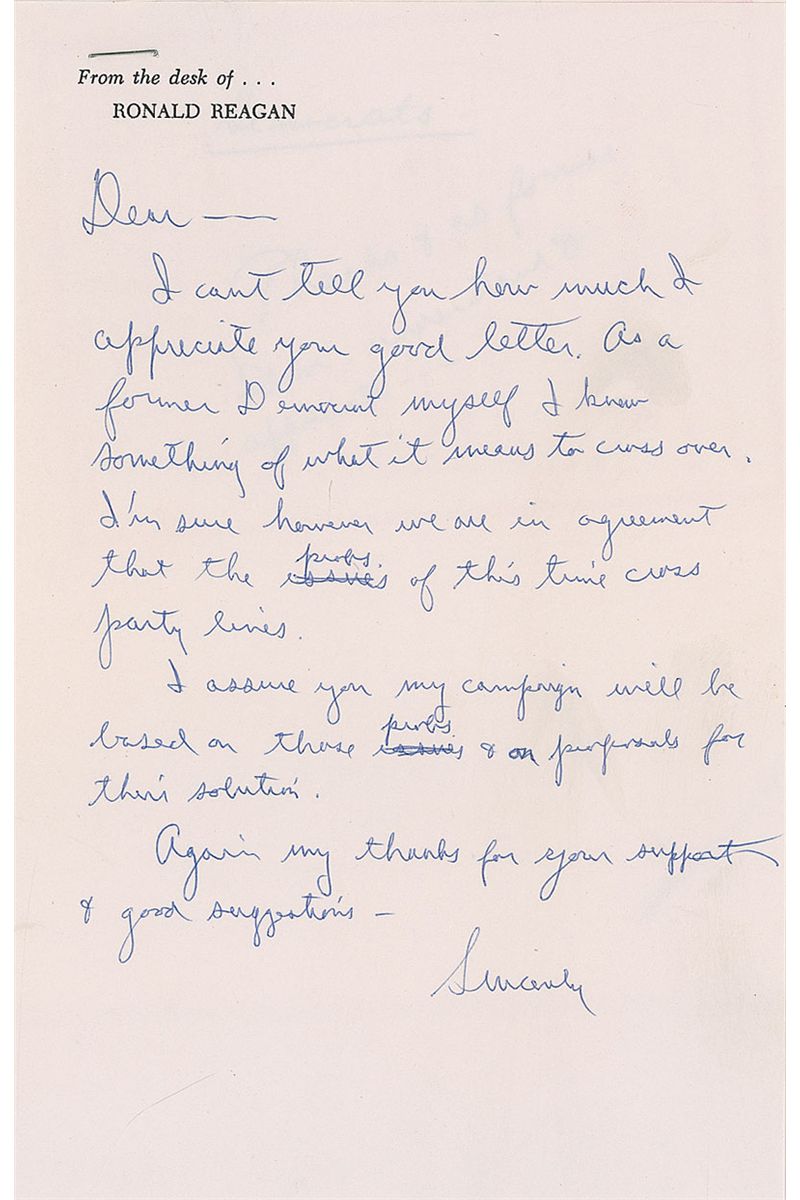 From the desk of . . .
RONALD REAGAN
Dear —
I cant tell you how much I
appreciate your good letter. As a
former Democrat myself I know
something of what it means to cross over.
I'm sure however we are in agreement
probs.
that the issues of this time cross
party lines.
I assure you my campaign will be
probs.
based on those issues & on proposals for
their solution.
Again my thanks for your support
& good suggestions –
Sincerely